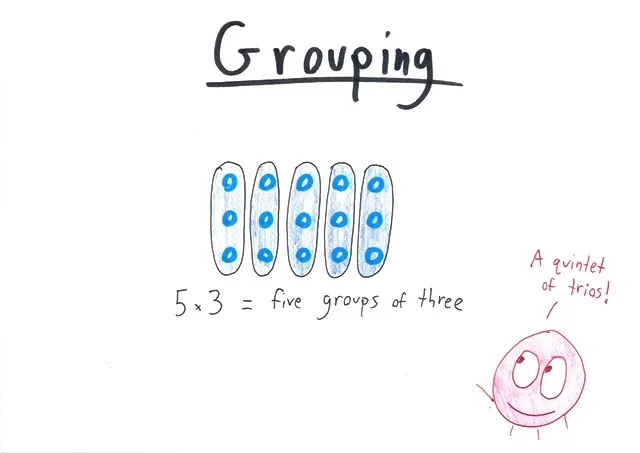 Grouping
5 × 3 = five groups of three
A quintet
of trios!